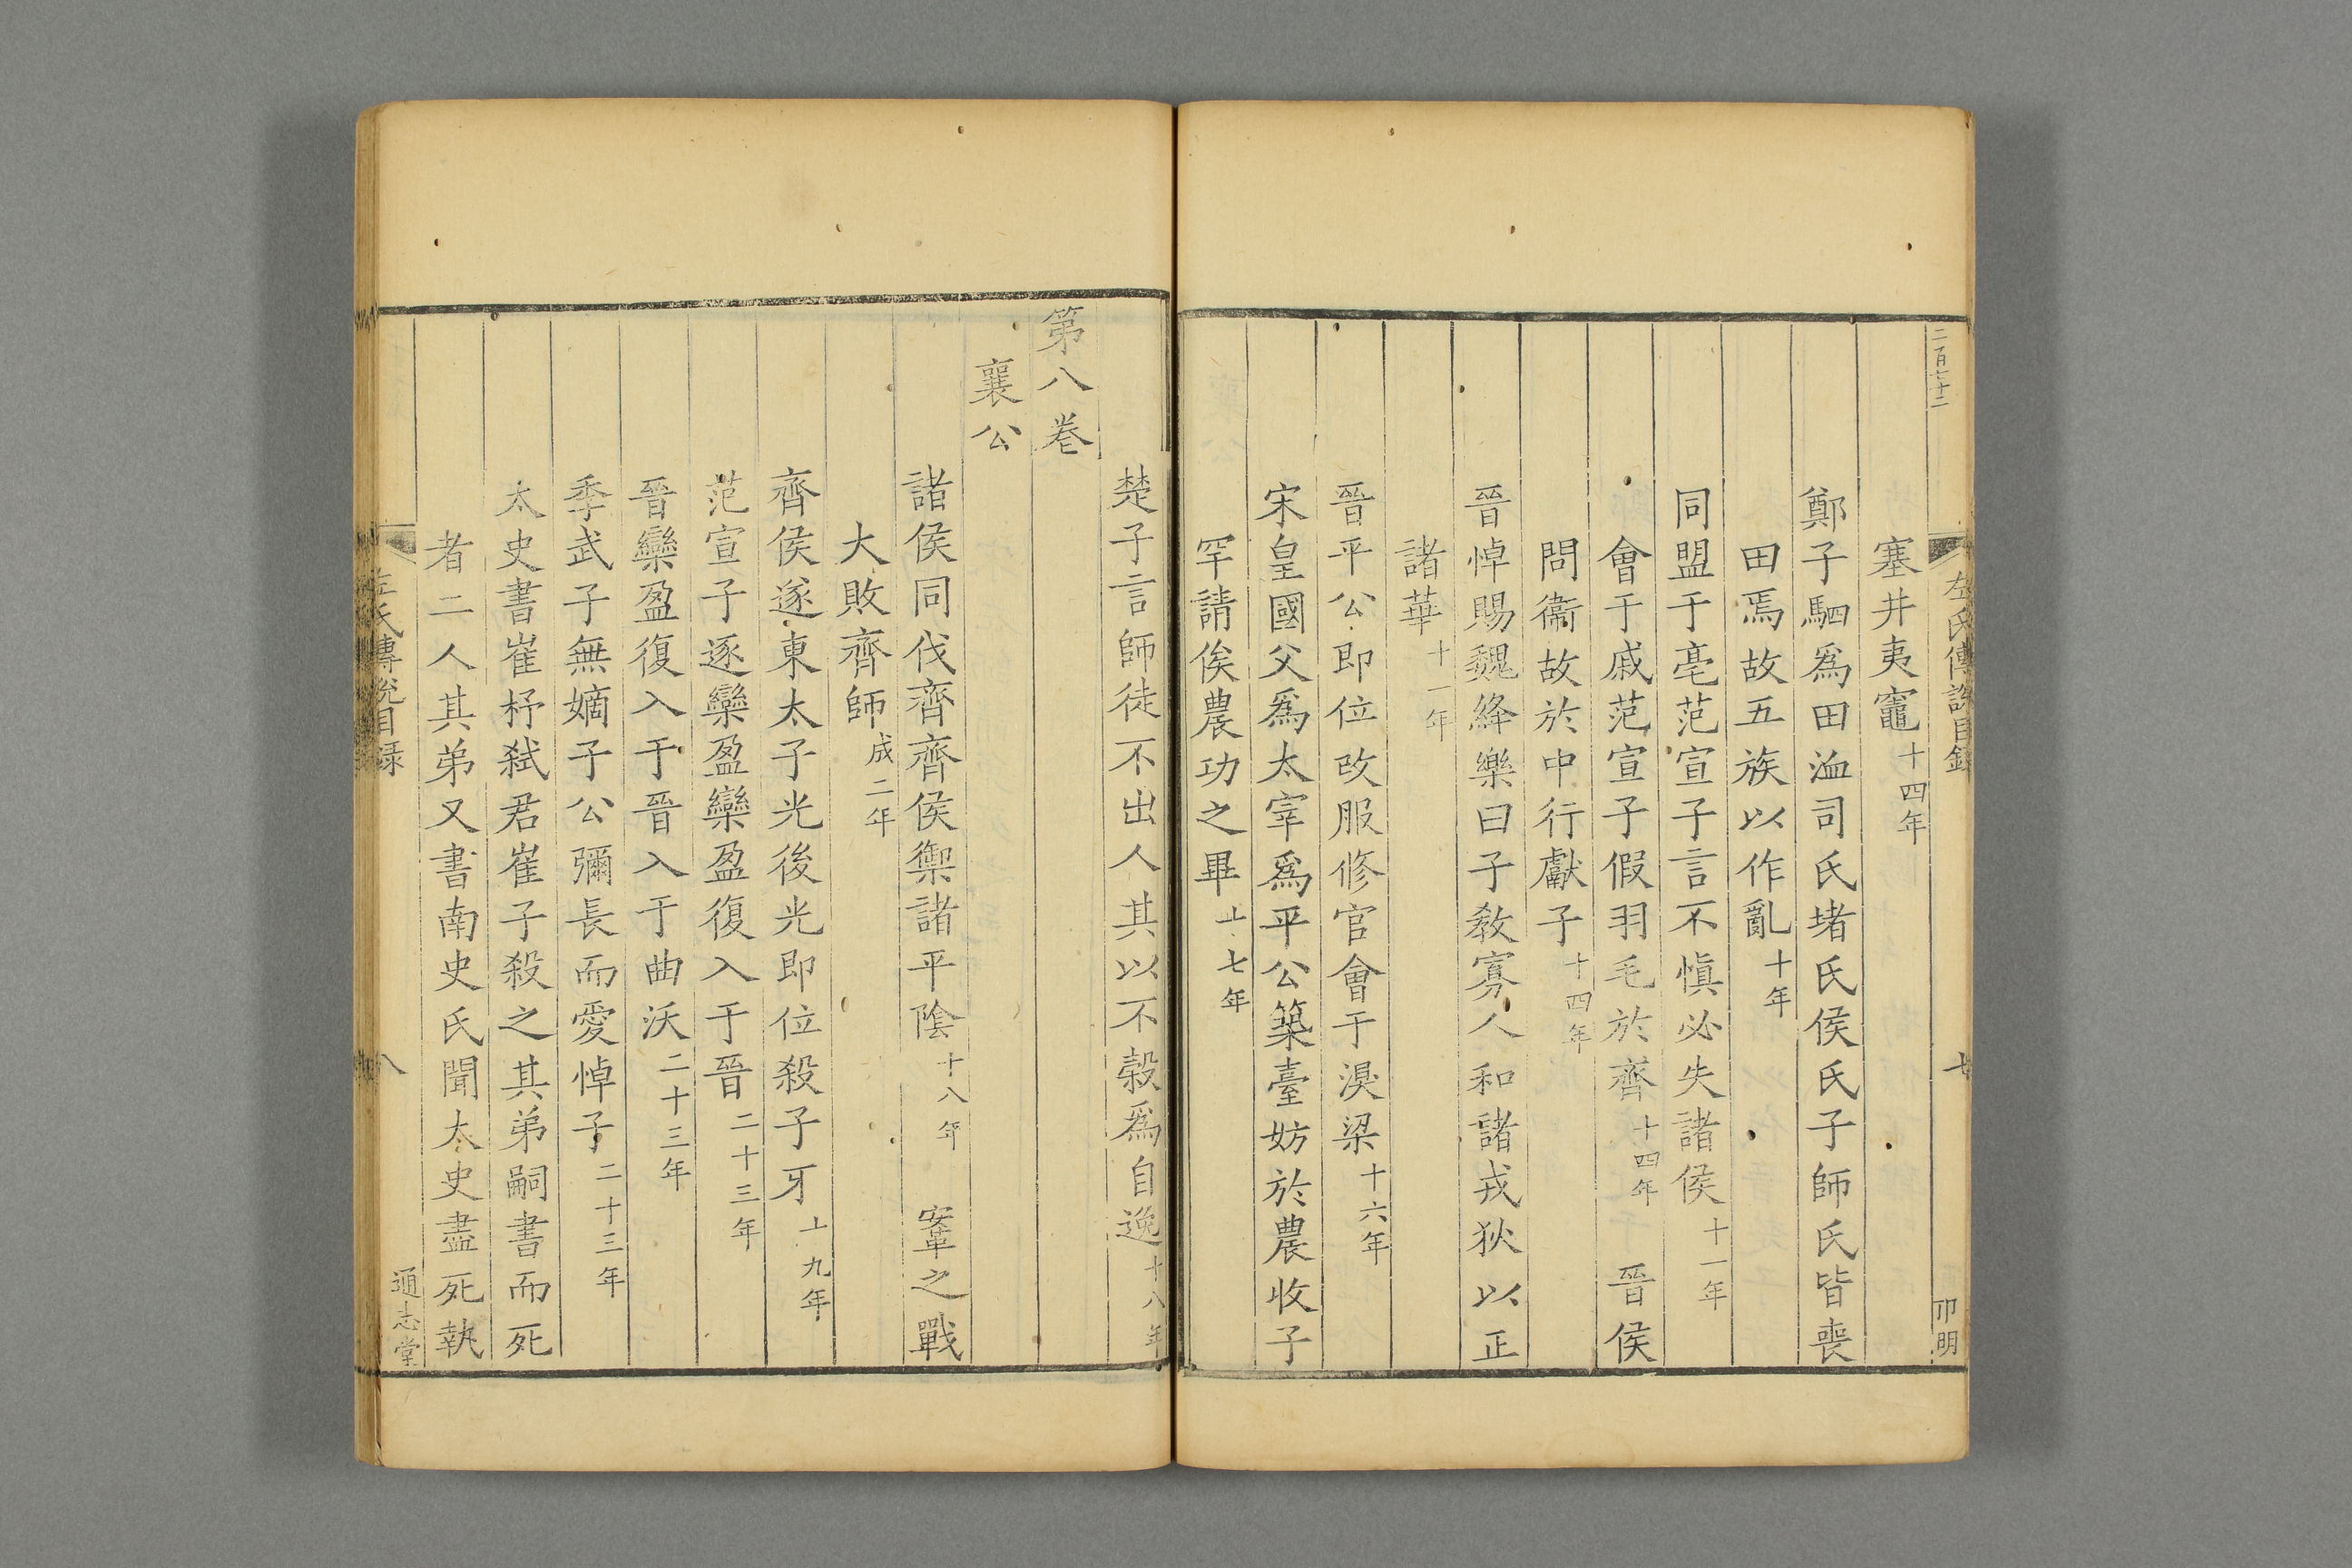 二百七十二
左氏傳說目錄
七
卬明
塞井夷竈十四年
鄭子駟爲田洫司氏堵氏侯氏子師氏皆喪
田焉故五族以作亂十年
同盟于亳范宣子言不愼必失諸侯十一年
會于戚范宣子假羽毛於齊十四年 晉侯
問衞故於中行獻子十四年
晉悼賜魏絳樂曰子敎寡人和諸戎狄以正
諸華十一年
晉平公即位改服修官會于湨梁十六年
宋皇國父爲太宰爲平公築臺妨於農收子
罕請俟農功之畢十七年
楚子言師徒不出人其以不穀爲自逸十八年
第八卷
襄公
諸侯同伐齊齊侯禦諸平陰十八年 鞌之戰
大敗齊師成二年
齊侯遂東太子光後光即位殺子牙十九年
范宣子逐欒盈欒盈復入于晉二十三年
晉欒盈復入于晉入于曲沃二十三年
季武子無嫡子公彌長而愛悼子二十三年
太史書崔杼弒君崔子殺之其弟嗣書而死
者二人其弟又書南史氏聞太史盡死執
左氏傳說目錄
八
通志堂